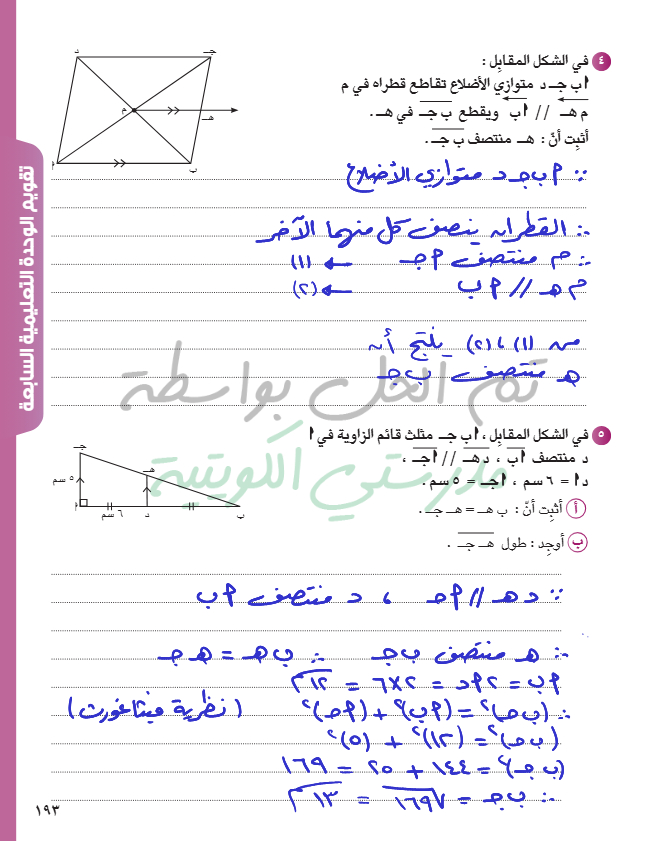 ٤ في الشكل المقابل :
أ ب جـ د متوازي الأضلاع تقاطع قطراه في م
م هـ // أ ب ويقطع ب جـ في هـ .
أثبت أنّ : هـ منتصف ب جـ .
د
جـ
م
هـ
أ
ب
∵ أ ب جـ د متوازي الأضلاع
∴ القطران ينصف كل منهما الآخر
∴ م منتصف أ جـ ← (١)
م هـ // أ ب ← (٢)
من (١) ، (٢) ينتج أن
هـ منتصف ب جـ
تم الحل بواسطة
مدرستي الكويتية
٥ في الشكل المقابل ، أ ب جـ مثلث قائم الزاوية في أ
د منتصف أ ب ، د هـ // أ جـ ،
د أ = ٦ سم ، أ جـ = ٥ سم .
أ أثبت أنّ : ب هـ = هـ جـ .
ب أوجد : طول هـ جـ .
جـ
هـ
٥ سم
أ
٦ سم
د
ب
∵ د هـ // أ جـ ، د منتصف أ ب
∴ هـ منتصف ب جـ ∴ ب هـ = هـ جـ
أ ب = ٢ أ د = ٢×٦ = ١٢ سم
∴ (ب جـ)² = (أ ب)² + (أ جـ)² (نظرية فيثاغورث)
(ب جـ)² = (١٢)² + (٥)²
(ب جـ)² = ١٤٤ + ٢٥ = ١٦٩
∴ ب جـ = √١٦٩ = ١٣ سم
تقويم الوحدة التعليمية السابعة
١٩٣